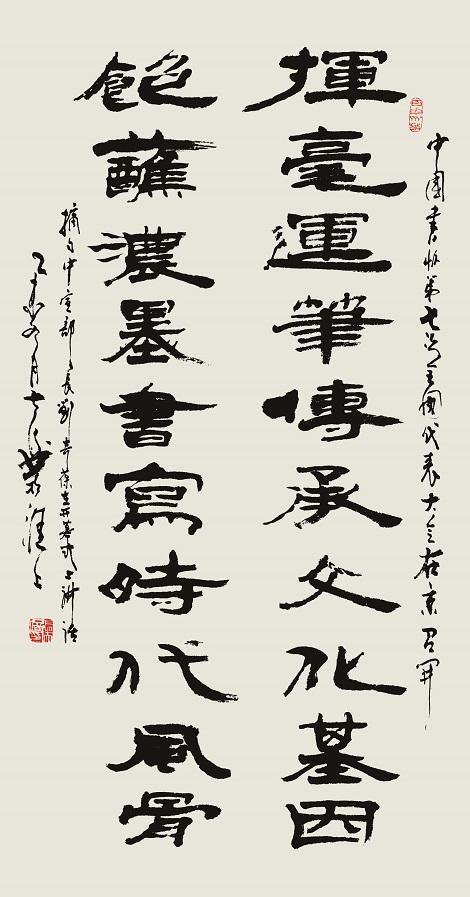 中國書協第七次全國代表大会在京召開
揮毫運筆傳承文化基因
飽蘸濃墨書寫時代風骨
摘自中宣部長劉奇葆在開幕式上講話
乙未冬月